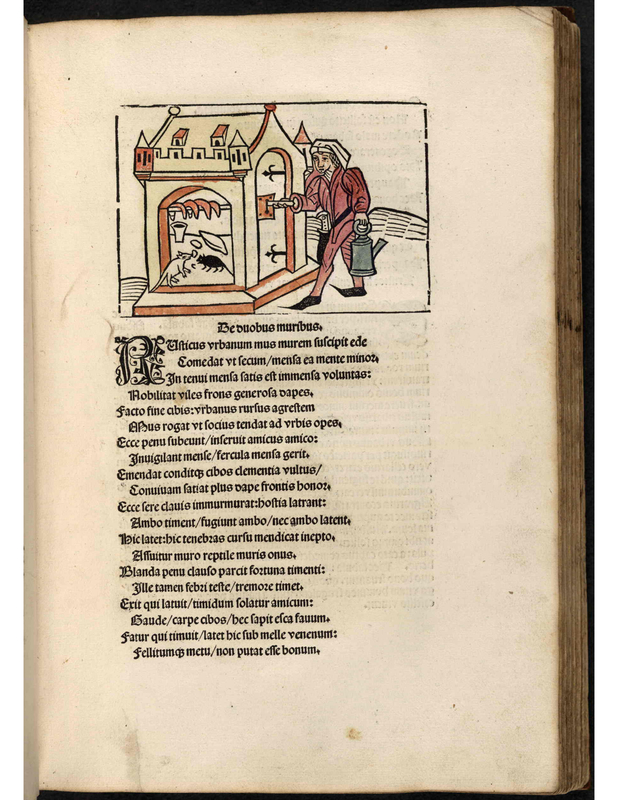 De duobus muribus.
RUsticus vrbanum mus murem suscipit ede
Comedat vt secum/mensa ea mente minor.
In tenui mensa satis est immensa voluntas:
Nobilitat viles frons generosa dapes.
Facto fine cibis:vrbanus rursus agrestem
Mus rogat vt socius tendat ad vrbis opes.
Ecce penu subeunt/inseruit amicus amico:
Inuigilant mense/fercula mensa gerit.
Emendat conditqꝫ cibos clementia vultus/
Conuiuam satiat plus dape frontis honor.
Ecce sere clauis immurmurat:hostia latrant:
Ambo timent/fugiunt ambo/nec ambo latent.
Hic latet:hic tenebras cursu mendicat inepto.
Assuitur muro reptile muris onus.
Blanda penu clauso parcit fortuna timenti:
Ille tamen febri teste/tremore timet.
Exit qui latuit/timidum solatur amicum:
Gaude/carpe cibos/hec sapit esca fauum.
Fatur qui timuit/latet hic sub melle venenum:
Fellitumqꝫ metu/non putat esse bonum.